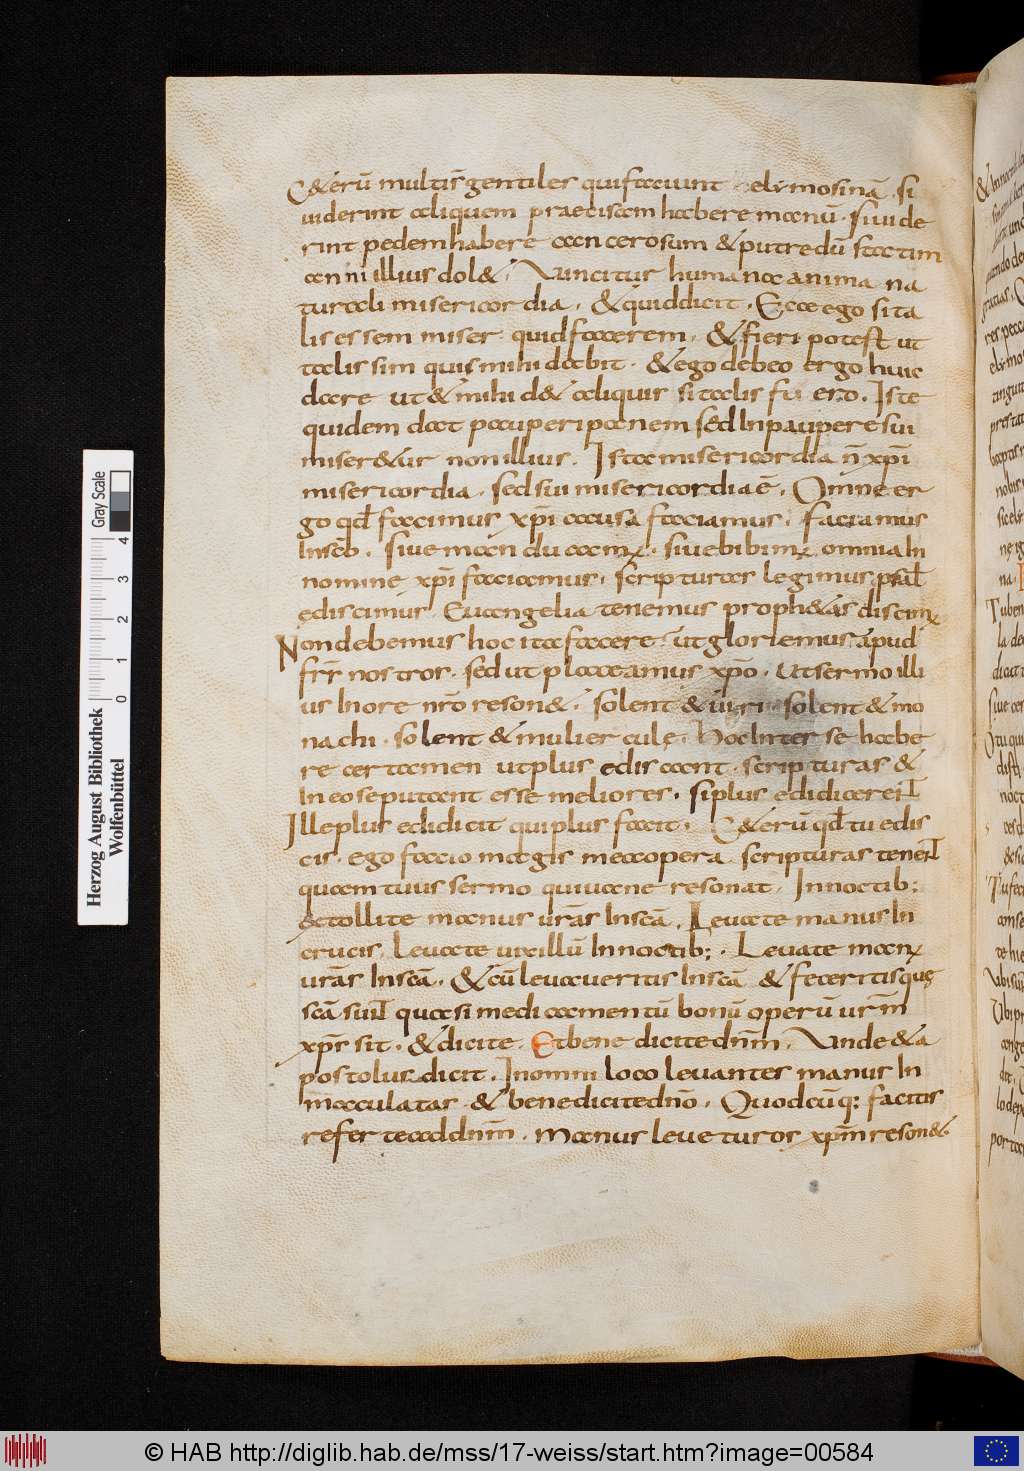 C&erū multi sꝰ gentiles qui faciunt elymosinā · si
uiderint aliquem praecisam habere manū · si uide
rint pedem habere cancerosum & putredū statim
anni illius dol& · Vincitur humana anima na
turali misericordia · & quid dicit · Ecce ego si ta
lis essem miser · quid facerem · & fieri potest ut
talis sim quis mihi dabit · & ego debeo ergo huic
dare ut & mihi d& aliquis si talis fu ero · Iste
quidem dat pauperi panem sed In paupere sui
miser&ur non illius · Ista misericordia n̄ xp̄i
misericordia · sed sui misericordia ē · Omne er
go qd̄ facimus xp̄i causa faciamus · faciamus
In sc̄o · siue manducamꝰ · siue bibimꝰ omnia In
nomine xp̄i faciamus · scripturas legimus psal̄
ediscimus · Euangelia tenemus proph&as discimꝰ
Non debemus hoc ita facere · ut gloriemur apud
fr̄r nostros · sed ut placeamus xp̄o · Ut sermo illi
us In ore nr̄o reson& · solent & uiri solent & mo
nachi · solent & muliercule · hoc Inter se habe
re certamen ut plus ediscant · scripturas &
In eo se putant esse meliores · si plus edidicerint
Ille plus edidicit qui plus facit · C&erū qd̄ tu edis
cis · ego facio magis mea opera · scripturas tenent
quam tuus sermo qui uane resonat · In noctib;
&tollite manus urās In scā · Leuate manus In
crucis · leuate uixillū In noctib; · Leuate manꝰ
urās In scā · & cū leuaueritis In scā & feceritis quę
scā sunt quasi medicamentū bonū operū urm̄
xp̄r sit · & dicite · Et benedicite dnm̄ · Vnde & a
postolus dicit · In omni loco leuantes manus In
maculatas · & benedicite dn̄o · Quodcūq; facitis
referte ad dnm̄ · manus leuet uror xpm̄ reson& ·
Herzog August Bibliothek
Wolfenbüttel
Gray Scale
0 1 2 3 4
© HAB http://diglib.hab.de/mss/17-weiss/start.htm?image=00584